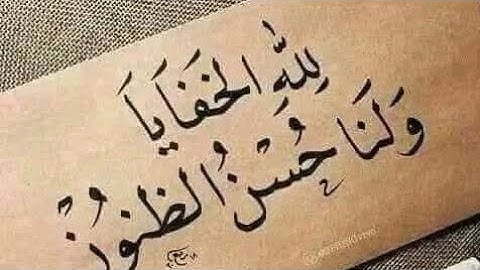 لِلّهِ الخَفَايَا
وَلَنَا حُسْنُ الظنُونْ